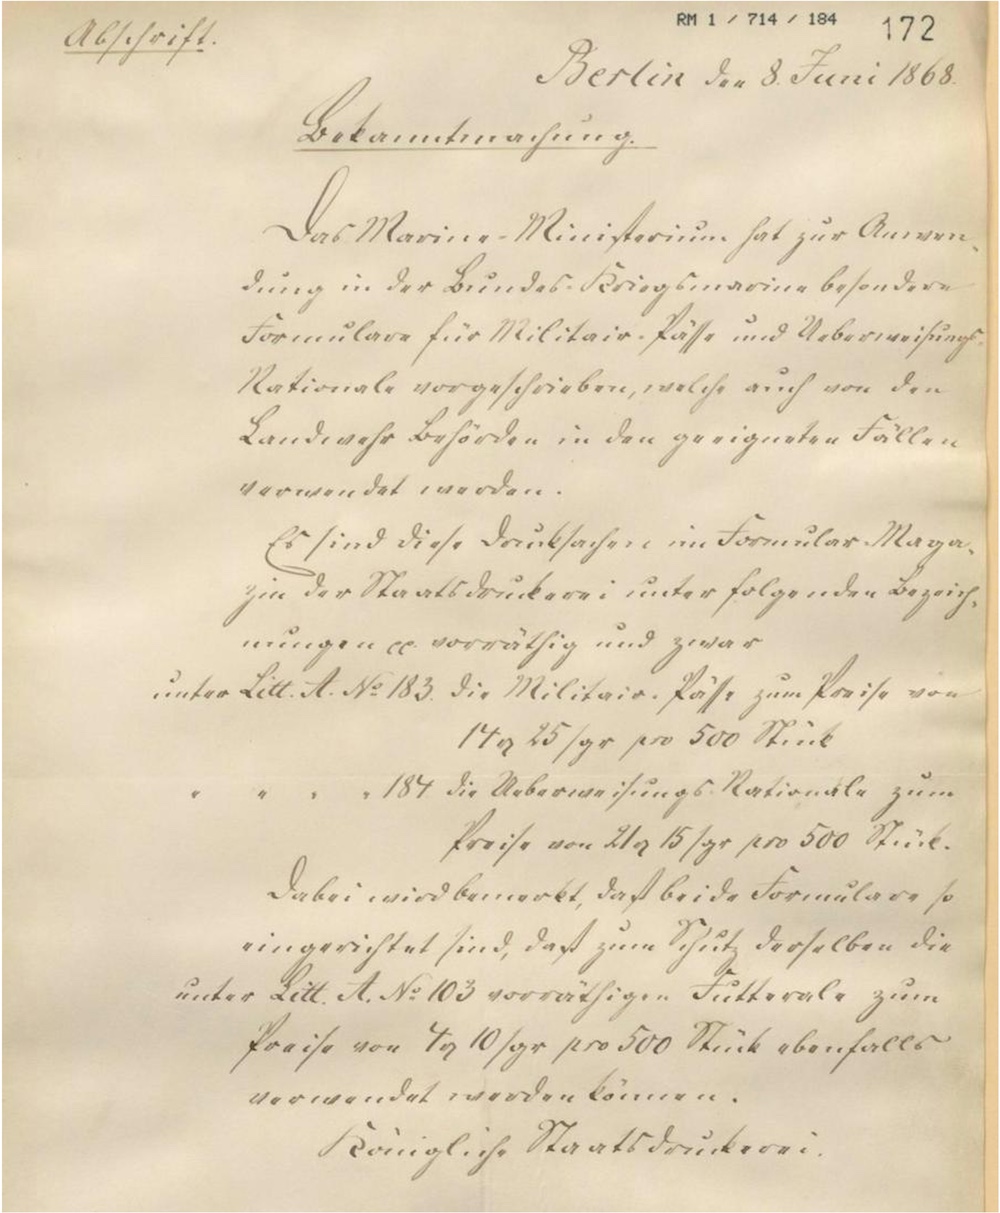 Abschrift.
RM 1 / 714 / 184
172
Berlin den 8. Juni 1868.
Bekanntmachung.
Das Marine-Ministerium hat zur Anwen-
dung in der Bundes-Kriegsmarine besondere
Formulare für Militair-Pässe und Ueberweisungs-
Nationale vorgeschrieben, welche auch von den
Landwehr Behörden in den geeigneten Fällen
verwendet werden.
Es sind diese Drucksachen im Formular-Maga-
zin der Staatsdruckerei unter folgenden Bezeich-
nungen pp. vorräthig und zwar
unter Litt. A. No 183. die Militair-Pässe zum Preise von
14 25 sgr pro 500 Stück
" " " " 184 die Ueberweisungs-Nationale zum
Preise von 21 15 sgr pro 500 Stück.
Dabei wird bemerkt, daß beide Formulare so
eingerichtet sind, daß zum Schutz derselben die
unter Litt. A. No 103 vorräthigen Futterale zum
Preise von 4 10 sgr pro 500 Stück ebenfalls
verwendet werden können.
Königliche Staatsdruckerei.